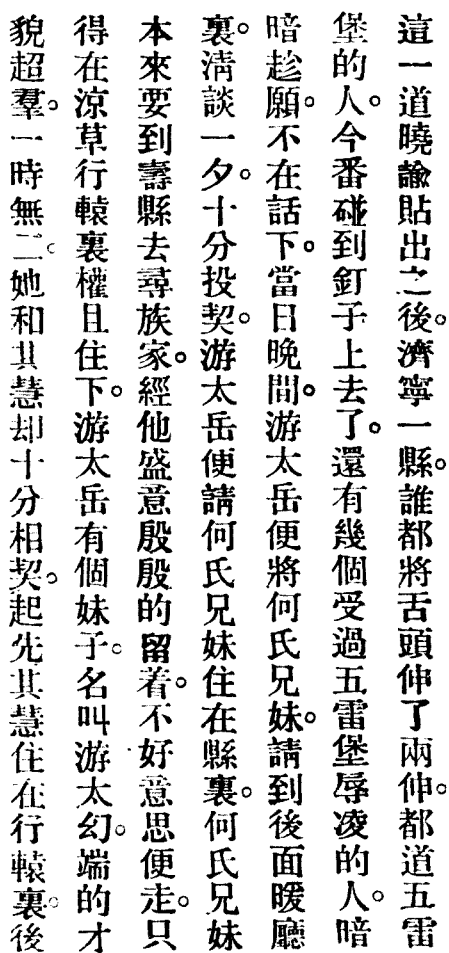 這一道曉諭貼出之後。濟寧一縣。誰都將舌頭伸了兩伸。都道五雷
堡的人。今番碰到釘子上去了。還有幾個受過五雷堡辱凌的人。暗
暗趁願。不在話下。當日晚間。游太岳便將何氏兄妹。請到後面暖廳
裏。淸談一夕。十分投契。游太岳便請何氏兄妹住在縣裏。何氏兄妹
本來要到壽縣去尋族家。經他盛意殷殷的留着。不好意思便走。只
得在涼草行轅裏權且住下。游太岳有個妹子。名叫游太幻。端的才
貌超羣。一時無二。她和其慧却十分相契。起先其慧住在行轅裏。後